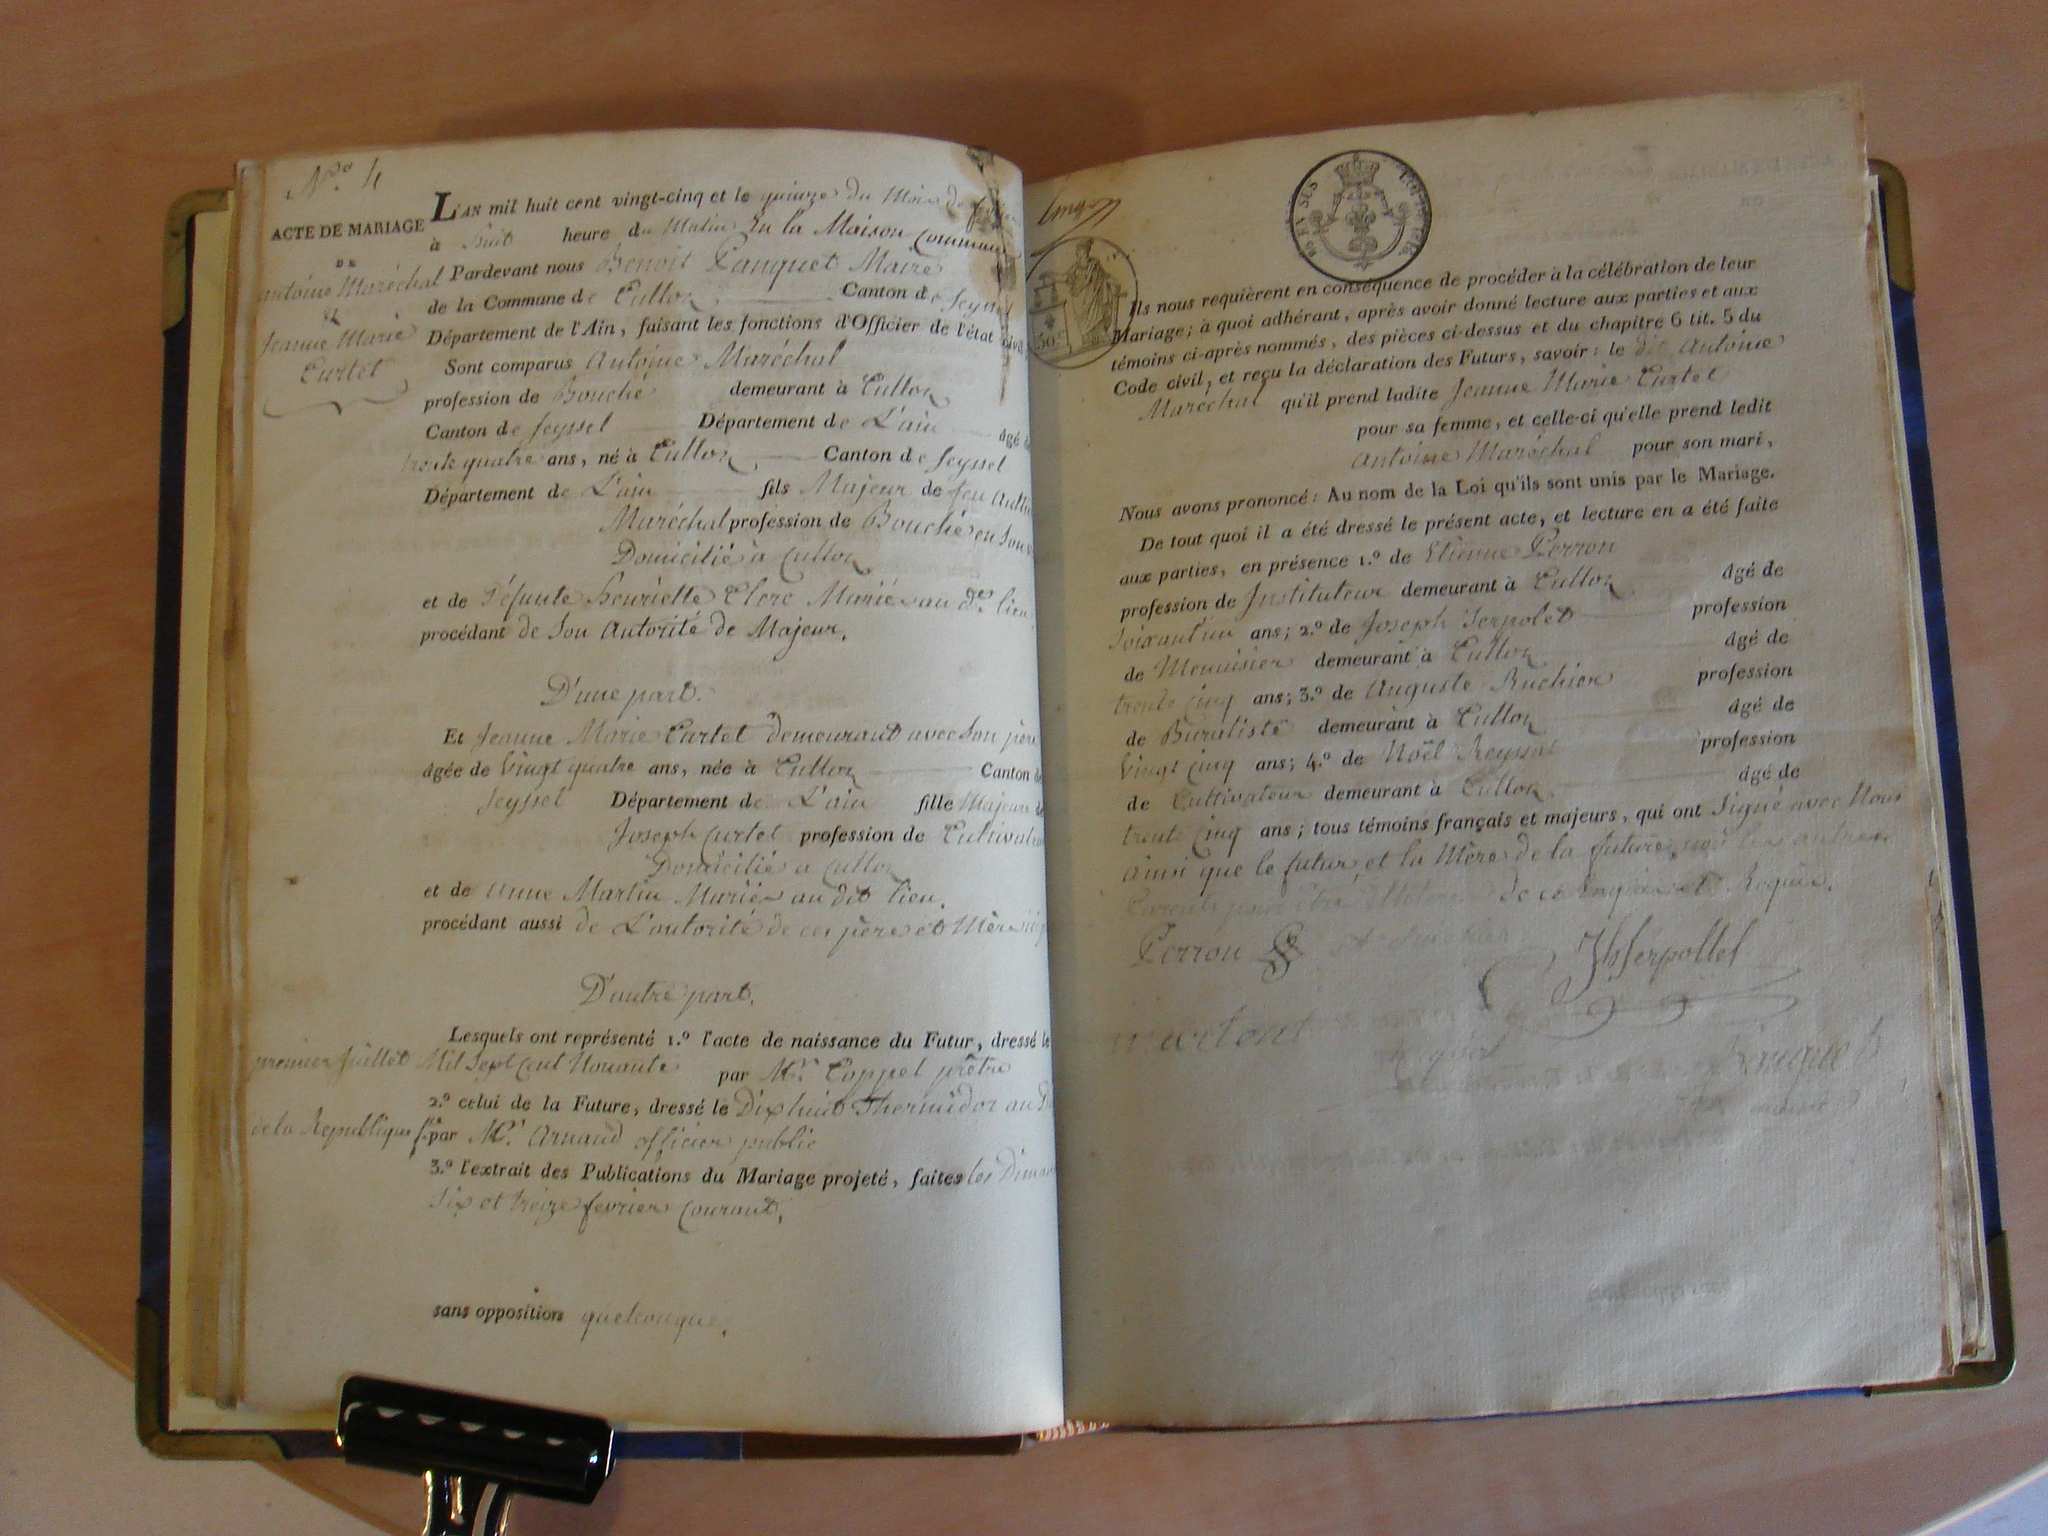 N.ro 4
ACTE DE MARIAGE
DE
Antoine Maréchal
Et
Jeanne Marie
Curtet
L'AN mil huit cent vingt-cinq et le quinze du Mois de
à huit heure du Matin En la Maison Commune
Pardevant nous Benoit Panquet Maire
de la Commune de Culloz, Canton de Seyssel
Département de l'Ain, faisant les fonctions d'Officier de l'état civil,
Sont comparus Antoine Maréchal
profession de Bouché demeurant à Culloz
Canton de Seyssel Département de L'ain âgé de
trente quatre ans, né à Culloz Canton de Seyssel
Département de L'ain fils Majeur de feu
Maréchal profession de Bouché en Son
Domicilié à Culloz
et de Défunte henriette Clerc Mariés au d. lieu,
procédant de Son Autorité de Majeur,
D'une part.
Et Jeanne Marie Curtet demeurant avec Son père
âgée de Vingt quatre ans, née à Culloz Canton de
Seyssel Département de L'ain fille Majeure de
Joseph Curtet profession de Cultivateur
Domicilié à Culloz
et de Anne Martin Mariés au dit lieu,
procédant aussi de L'autorité de ces père et Mère
D'autre part,
Lesquels ont représenté 1.º l'acte de naissance du Futur, dressé le
premier Juillet Mil Sept Cent Nonante par M.r Coppel prêtre
2.º celui de la Future, dressé le Dix huit Thermidor an
de la Republique par M.r Arnaud officier public
3.º l'extrait des Publications du Mariage projeté, faites les
Six et treize fevrier Courant,
sans opposition quelconque,
50 C.
Ils nous requièrent en conséquence de procéder à la célébration de leur
Mariage; à quoi adhérant, après avoir donné lecture aux parties et aux
témoins ci-après nommés, des pièces ci-dessus et du chapitre 6 tit. 5 du
Code civil, et reçu la déclaration des Futurs, savoir: le dit Antoine
Maréchal qu'il prend ladite Jeanne Marie Curtet
pour sa femme, et celle-ci qu'elle prend ledit
Antoine Maréchal pour son mari,
Nous avons prononcé: Au nom de la Loi qu'ils sont unis par le Mariage.
De tout quoi il a été dressé le présent acte, et lecture en a été faite
aux parties, en présence 1.º de Etienne Perron
profession de Instituteur demeurant à Culloz âgé de
Soixantun ans; 2.º de Joseph Serpolet profession
de Menuisier demeurant à Culloz âgé de
trente Cinq ans; 3.º de Auguste Ruchier profession
de Buraliste demeurant à Culloz âgé de
Vingt Cinq ans; 4.º de Noël Reyssat profession
de Cultivateur demeurant à Culloz âgé de
trente Cinq ans; tous témoins français et majeurs, qui ont Signé avec Nous
Ainsi que le futur et la Mère de la future, non les autres
de ce Enquis et Requis,
Perron
Jh Serpollet
Reyssat